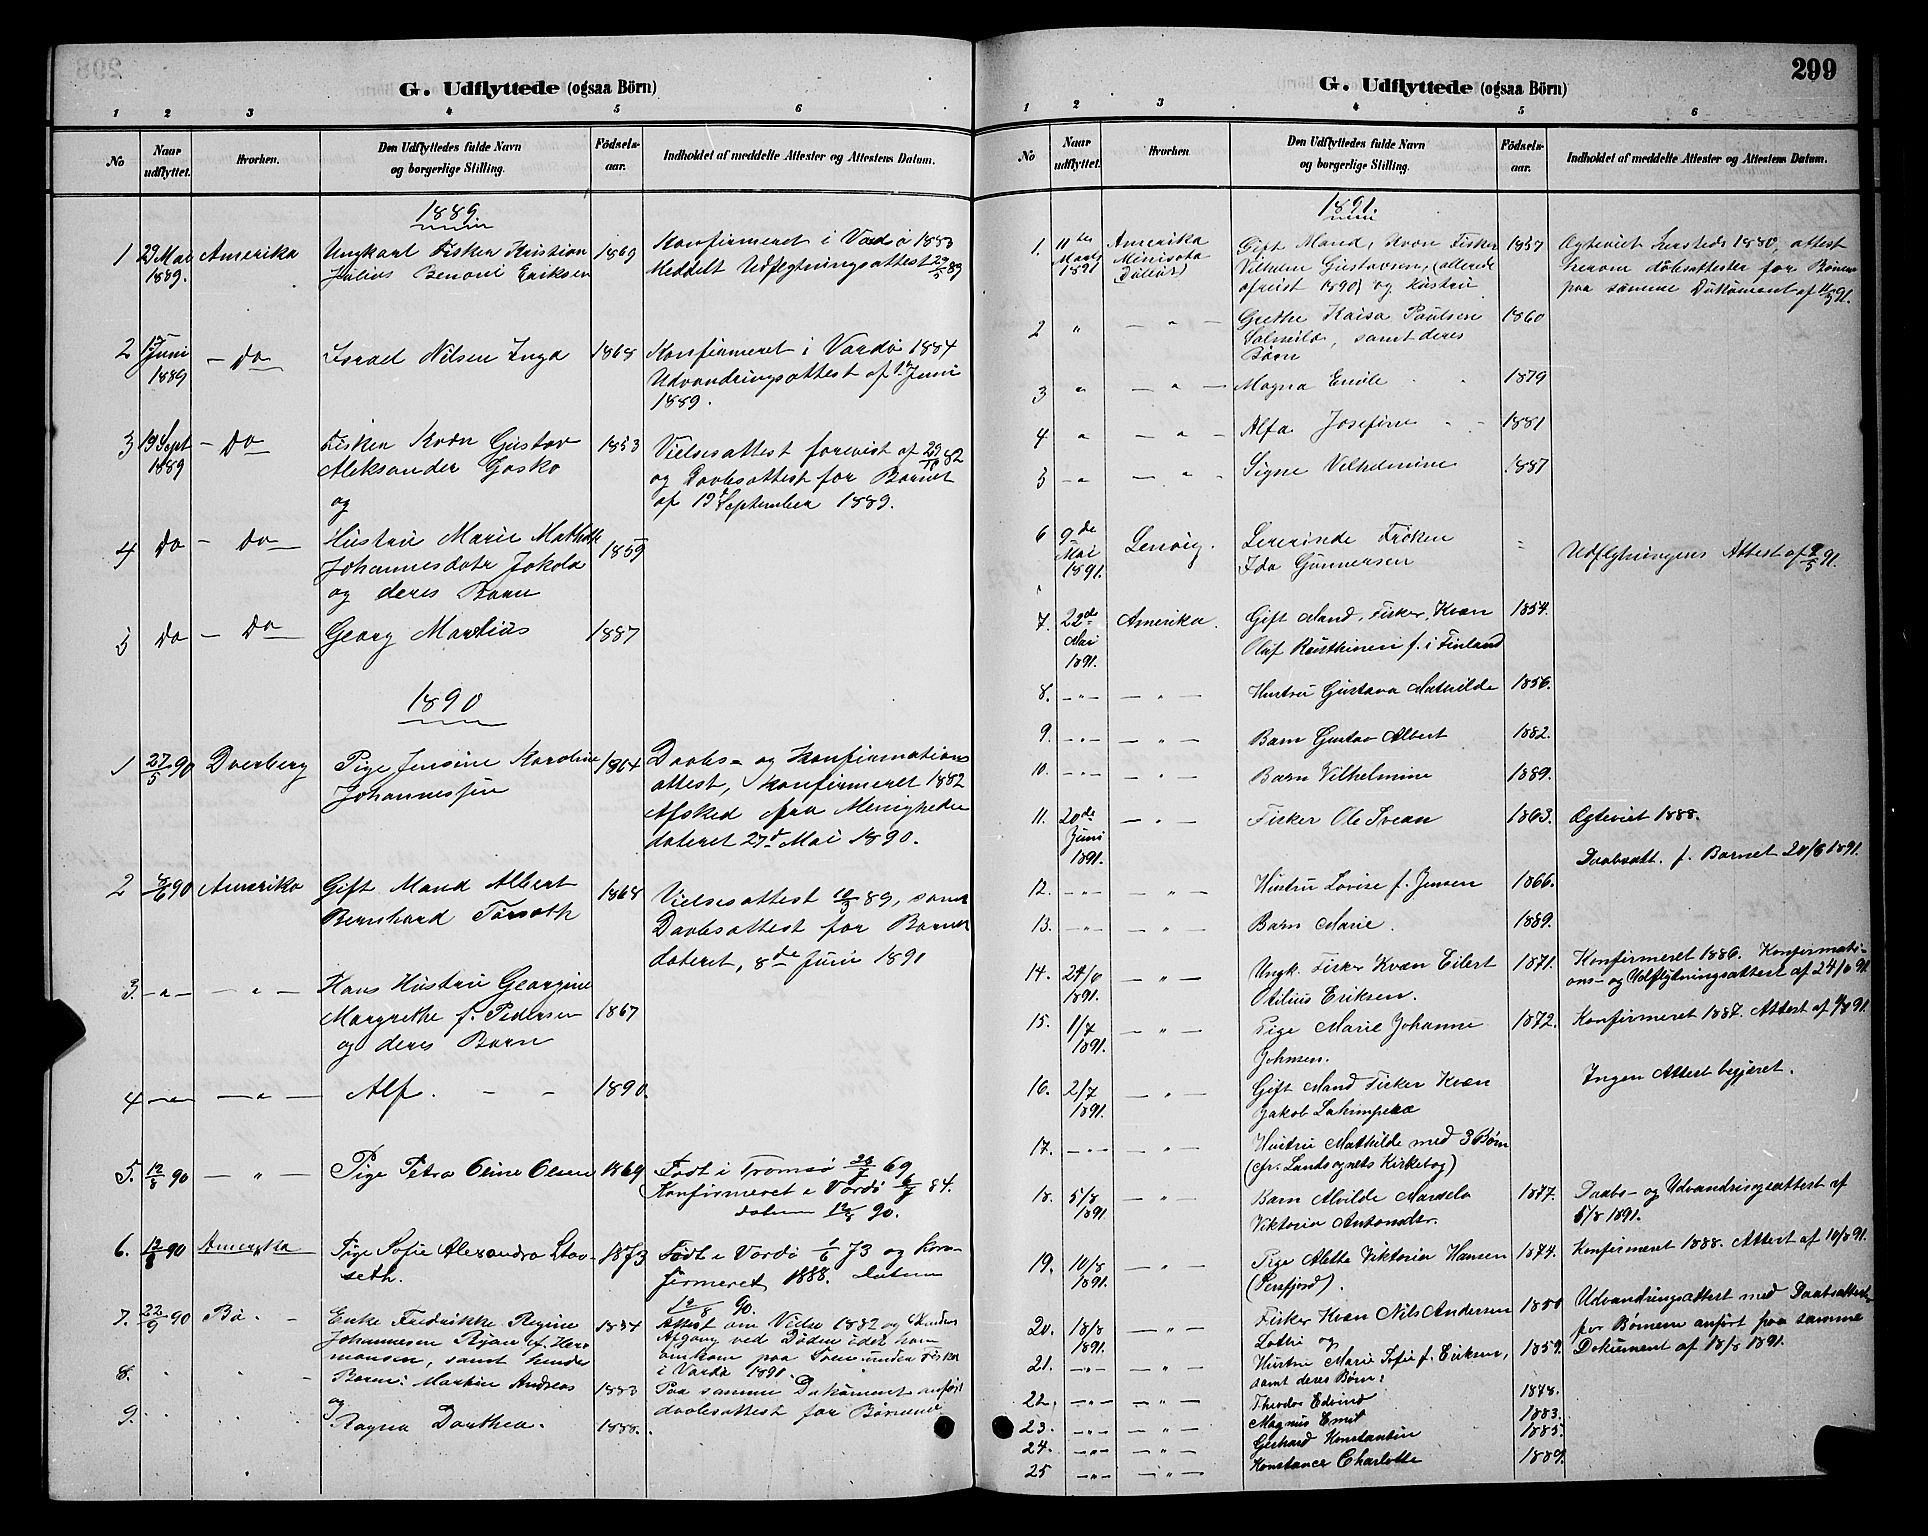 G. Udflyttede (ogsaa Börn)
1 2 3 4 5 6
No
Naar udflyttet.
Hvorhen.
Den Udflyttedes fulde Navn
og borgerlige Stilling.
Födsels-
aar.
Indholdet af meddelte Attester og Attestens Datum.
1889.
1 29 Mai 1889. Amerika Ungkarl Fisker Kristian 1869 Konfirmeret i Vardö 1883
Julius Benoni Eriksen Meddelt Udflytningsattest 29/5 89
2 Juni 1889 - Do Israel Nilsen Inga 1868 Konfirmeret i Vardö 1884
Udvandringsattest af Juni
1889.
3 19 Sept 1889 - Do Fisker Kvæn Gustav 1853 Vielsesattest forevist af 82
Aleksander Gosko og Daabsattest for Barnet
og af 19 September 1889.
4 Do - Do Hustru Marie Mathilde 1859
Johannesdatr Jokola
og deres Barn
5 Do - Do Georg Marelius 1887
1890
1 27/5 90 Dverberg Pige Jensine Karoline 1864 Daabs- og Konfirmations
Johannessen attest, konfirmeret 1882
Afsked fra Menigheden
dateret 27d Mai 1890.
2 8/6 90 Amerika Gift Mand Albert 1868 Vielsesattest 89, samt
Bernhard Daabsattest for Barnet
dateret, 8de Juni 1890
3. -„- - „ - Hans Hustru Georgine
Margrethe f. Pedersen 1867
og deres Barn
4 -„- - „ - Alf. - - 1890.
5. 12/8 90 - „ - Pige Petra Oline Olsen 1869 Födt i Tromsö 69
Konfirmeret i Vardö 84.
datum 12/8 90.
6. 12/8 90 Amerika Pige Sofie Alexandra 1873 Födt i Vardö 1/6 73 og kon-
seth. firmeret 1888. Datum
12/8 90.
7. 22/9 90 Bö. - Enke Fredrikke Regine 1854 Attest om Vielse 1882 og Mandens
Johannesen f. Her- Afgang ved Döden idet han
mansen, samt hendes omkom paa Söen under Fiskeri
i Vardö 1890.
8. „ „ Barn: Martin Andreas 1883 Paa samme Dokument anfört
og daabsattest for Börnene
9. „ „ Ragna Dorthea. 1888.
299
G. Udflyttede (ogsaa Börn)
1 2 3 4 5 6
No
Naar
udflyttet.
Hvorhen
Den Udflyttedes fulde Navn
og borgerlige Stilling.
Födsels-
aar.
Indholdet af meddelte Attester og Attestens Datum.
1891.
1. 11te Marts 1891 Amerika Gift Mand, Kvæn Fisker 1857 Ægteviet 1880, attest
Minisota Vilhelm Gustavsen, (allerede herom døbsattester for Börnene
(Dulut) afreist 1890) og Hustru paa samme Dokument af 91.
2 „ - „ - Grethe Kaisa Paulsen 1860
samt deres
Börn
3 „ - „ - Magna 1879
4 „ - „ - Alfa Josefine 1881
5 -„ - „ Signe Vilhelmine 1887
6 9de Mai 1891. Lenvig. Lererinde Fröken = Udflytningens Attest af 9/5 91.
Ida Gunnersen
7. 22de Mai 1891. Amerika. Gift Mand, Fisker, Kvæn 1854.
Oluf f. i Finland
8. -„- - „ - Hustru Gustava Mathilde 1856.
9. -„- - „ - Barn Gustav Albert 1882.
10. -„- - „ - Barn Vilhelmine 1889.
11. 20de Juni 1891. - „ - Fisker Ole Svean 1863. Ægteviet 1888.
Daabsatt. f. Barnet 20/6 1891.
12. -„- „ - Hustru Lovise f. Jensen 1866.
13. -„- - „ - Barn Marie. 1889.
14. 24/6 1891. - „ - Ungk. Fisker Kvæn Eilert 1871. Konfirmeret 1886. Konfirmati-
Otilius Eriksen. ons- og Udflytningsattest af 24/6 91
15. 1/7 1891. - „ - Pige Marie Johanne 1872. Konfirmeret 1887. Attest af 91.
Johnsen.
16. 2/7 1891. - „ - Gift Mand Fisker Kvæn Ingen Attest begjeret.
Jakob
17. -„- - „ Hustru Mathilde med 3 Börn
(cfr. Landsognets Kirkebog)
18. 5/8 1891. - „ - Barn Alvilde Marsela 1877. Daabs- og Udvandringsattest af
Viktoria Antonsdtr. 5/8 1891.
19. 10/8 1891. - „ - Pige Alette Viktoria Hansen 1874. Konfirmeret 1888. Attest af 10/8 91.
(Persfjord).
20. 18/8 1891. - „ - Fisker Kvæn Nils Andersen 1850 Udvandringsattest med Daabsattest
og for Börnene anfört paa samme
21. -„- - „ - Hustru Marie Sofie f. Eriksen, 1859. Dokument af 18/8 1891.
samt deres Börn:
22. -„- - „ - Theodor Edvind 1878.
23. -„- - „ - Magnus Emil 1883.
24. -„- - „ - Gerhard Konstantin 1885.
25 -„- - „ - Konstance Charlotte 1889.